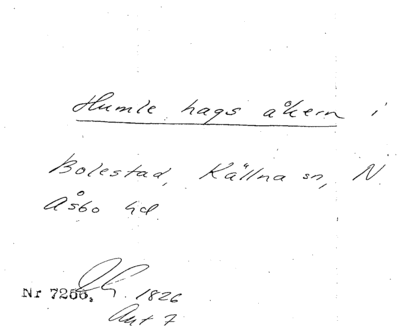 Humle hags åkern i
Bolestad, Källna sn, N.
Åsbo hd.
Nr 7266, 1826
Akt 7